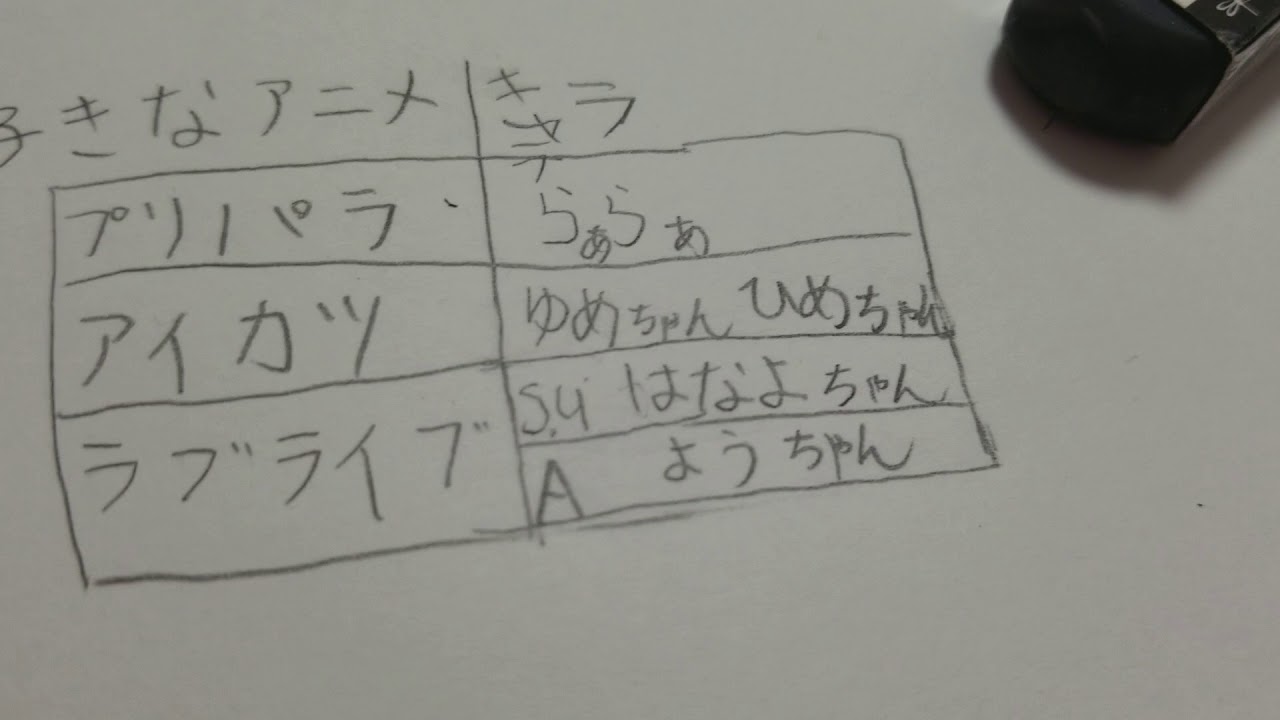 好きなアニメ キャラ
プリパラ らぁらぁ
アイカツ ゆめちゃん ひめちゃん
ラブライブ S.U はなよちゃん
A ようちゃん